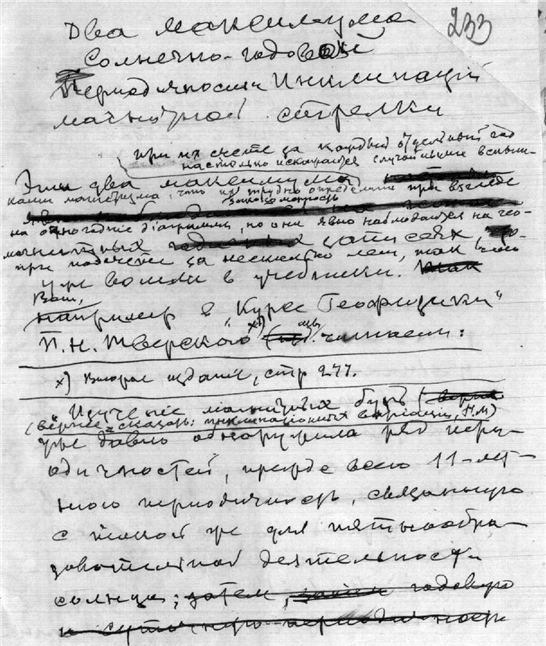 233
Два максимума
солнечно-годовой
периодичности Инклинаций
магнитной стрелки
при их счете за каждый отдельный год
настолько искажается случайными вспыш-
Эти два максимума
ками магнетизма, что их трудно определить при взгляде
на однолетние диаграммы, но они явно наблюдаются на гео-
магнитных записях
при подсчете за несколько лет, так что
уже вошли в учебники.
Вот,
например в „Курсе Геофизики"
П. Н. Тверского x) мы читаем:
x) Второе издание, стр 277.
Изучение магнитных бурь
(вернее сказать: инклинационных вариаций, НМ)
уже давно обнаружила ряд пери-
одичностей, прежде всего 11-лет-
нюю периодичность, связанную
с такой же для пятнообра-
зовательной деятельности
солнца; затем, годовую
и суточную периодичность